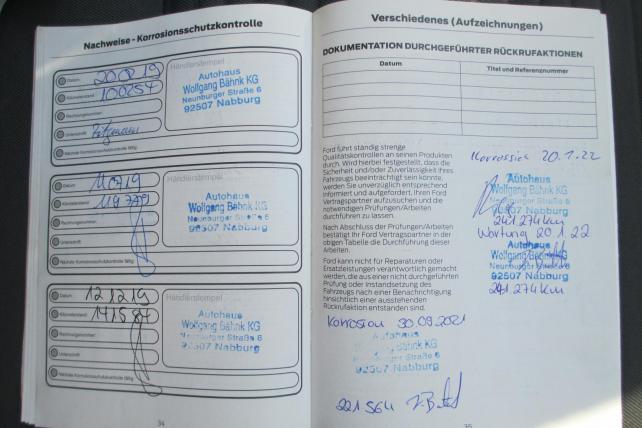 Nachweise - Korrosionsschutzkontrolle
Datum
Händlerstempel
Kilometerstand 100257
Autohaus
Wolfgang Bähnk KG
Neunburger Straße 6
92507 Nabburg
Rechnungsnummer
Unterschrift
Nächste Korrosionsschutzkontrolle fällig:
Datum 11.07.19
Händlerstempel
Kilometerstand
Autohaus
Wolfgang Bähnk KG
Neunburger Straße 6
92507 Nabburg
Rechnungsnummer
Unterschrift
Nächste Korrosionsschutzkontrolle fällig:
Datum 12.12.19
Händlerstempel
Kilometerstand 141587
Autohaus
Wolfgang Bähnk KG
Neunburger Straße 6
92507 Nabburg
Rechnungsnummer
Unterschrift
Nächste Korrosionsschutzkontrolle fällig:
34
Verschiedenes (Aufzeichnungen)
DOKUMENTATION DURCHGEFÜHRTER RÜCKRUFAKTIONEN
Datum
Titel und Referenznummer
Ford führt ständig strenge
Qualitätskontrollen an seinen Produkten
durch. Wird hierbei festgestellt, dass die
Sicherheit und/oder Zuverlässigkeit Ihres
Fahrzeugs beeinträchtigt sein könnte,
werden Sie unverzüglich entsprechend
informiert und aufgefordert, Ihren Ford
Vertragspartner aufzusuchen und die
notwendigen Prüfungen/Arbeiten
durchführen zu lassen.
Nach Abschluss der Prüfungen/Arbeiten
bestätigt Ihr Ford Vertragspartner in der
obigen Tabelle die Durchführung dieser
Arbeiten.
Ford kann nicht für Reparaturen oder
Ersatzleistungen verantwortlich gemacht
werden, die aus einer nicht durchgeführten
Prüfung oder Instandsetzung des
Fahrzeugs nach einer Benachrichtigung
hinsichtlich einer ausstehenden
Rückrufaktion entstanden sind.
Korrosion 20.1.22
Autohaus
Wolfgang Bähnk KG
Neunburger Straße 6
92507 Nabburg
241 274 km
Wartung 20.1.22
Autohaus
Wolfgang Bähnk KG
Neunburger Straße 6
92507 Nabburg
241 274 km
Korrosion 30.09.2021
Autohaus
Wolfgang Bähnk KG
Neunburger Straße 6
92507 Nabburg
221 564
35